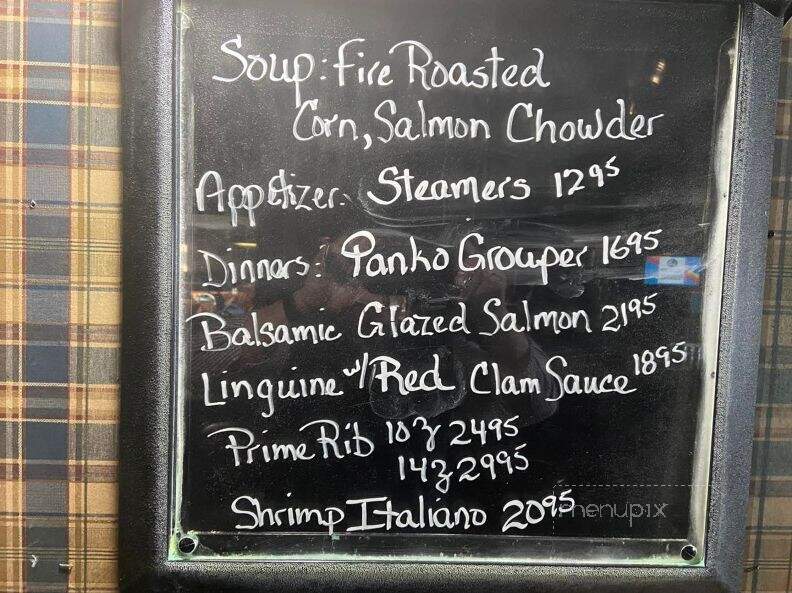 Soup: Fire Roasted
Corn, Salmon Chowder
Appetizer: Steamers 12 95
Dinners: Panko Grouper 16 95
Balsamic Glazed Salmon 21 95
Linguine w/ Red Clam Sauce 18 95
Prime Rib 10z 24 95
14z 29 95
Shrimp Italiano 20 95
menupix